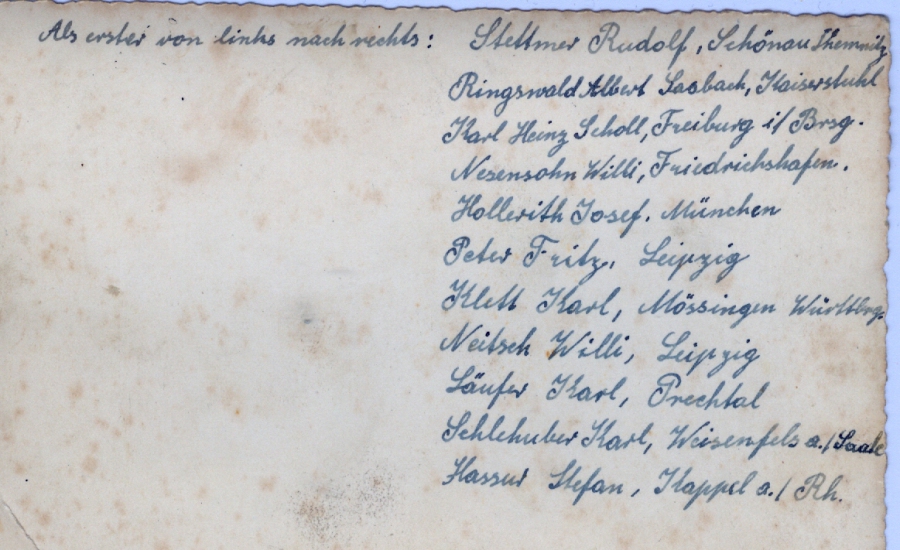 Als erster von links nach rechts: Stettmer Rudolf, Schönau Chemnitz
Ringswald Albert Saabach, Kaiserstuhl
Karl Heinz Scholl, Freiburg i/ Brsg.
Nesensohn Willi, Friedrichshafen.
Hollerith Josef. München
Peter Fritz, Leipzig
Klett Karl, Mössingen Württbrg.
Neitsch Willi, Leipzig
Läufer Karl, Prechtal
Schlehuber Karl, Weisenfels a./Saale
Hassur Stefan, Kappel a./ Rh.